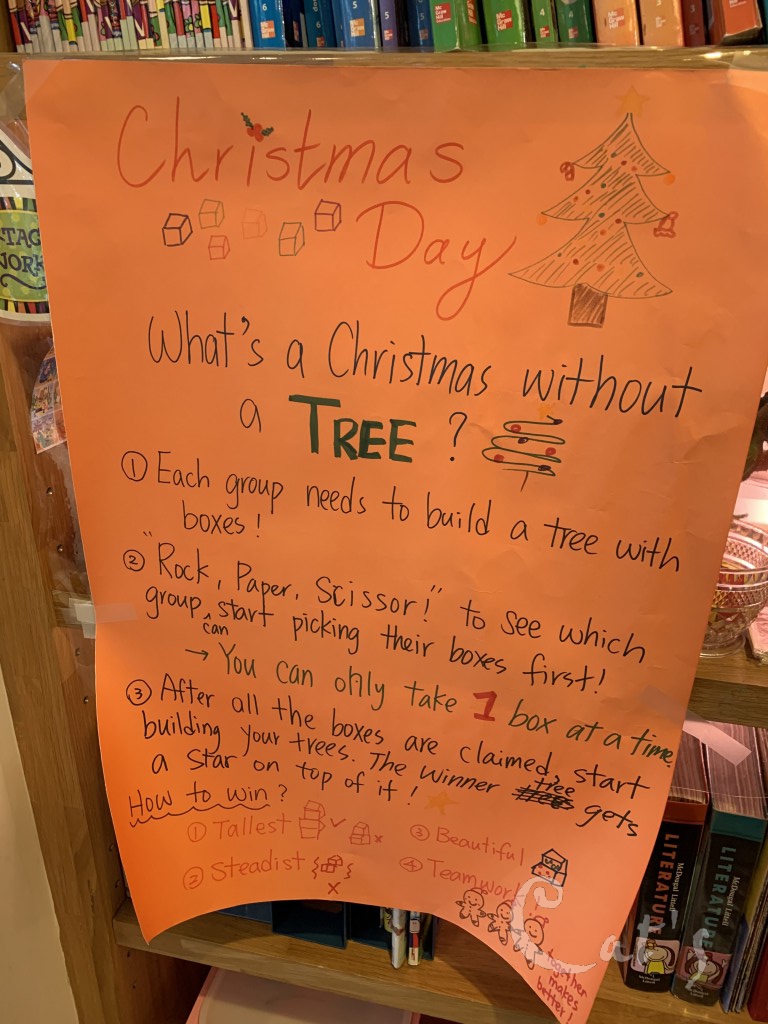 Christmas
Day
What's a Christmas without
a TREE ?
① Each group needs to build a tree with
boxes !
② "Rock, Paper, Scissor!" to see which
group can start picking their boxes first!
→ You can only take 1 box at a time.
③ After all the boxes are claimed, start
building your trees. The winner tree gets
a star on top of it !
How to win ?
① Tallest
② Steadist
③ Beautiful
④ Teamwork
together
makes
better !
Cat S
TAG
WORK
McDougal Littell
LITERATURE
McDougal Littell
LITERATURE
6
6
5
5
5
5
4
4
McGraw Hill